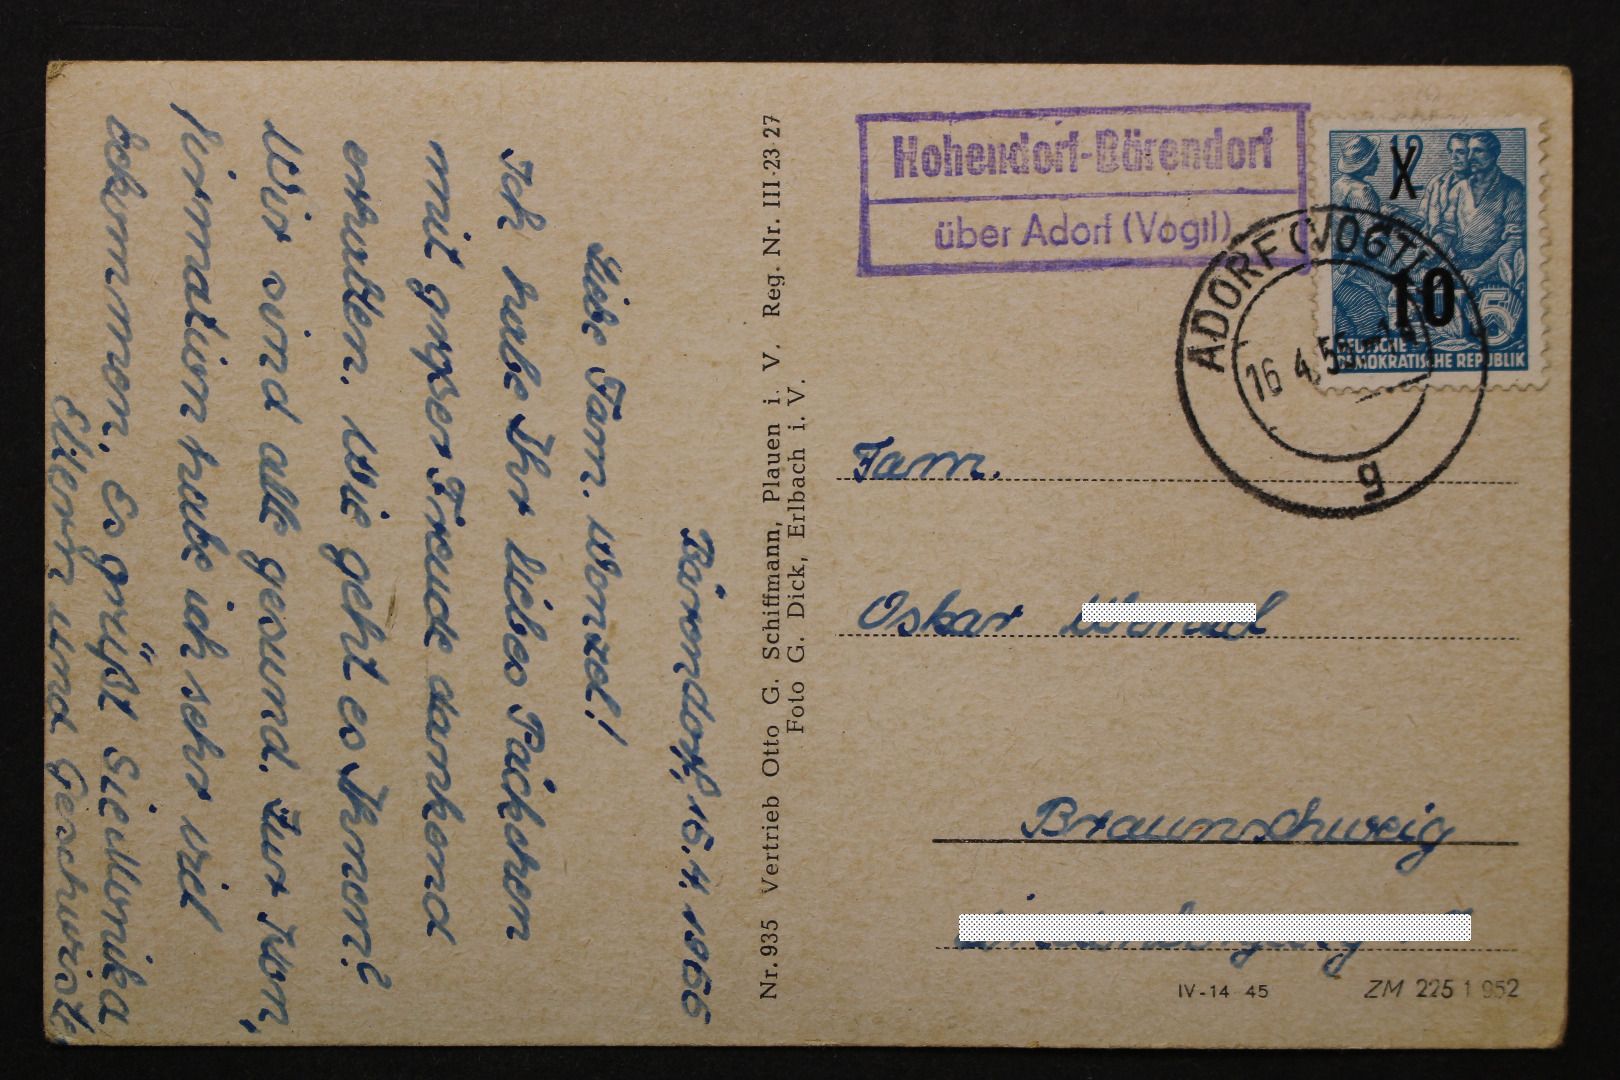 Bärendorf, 15.4.1955
Liebe Fam. Wenzel!
Ich habe Ihr liebes Päckchen
mit großer Freude dankend
erhalten. Wie geht es Ihnen?
Wir sind alle gesund. Zur Kon,
firmation habe ich sehr viel
bekommen. Es grüßt Sie Monika
Eltern und Geschwister
Nr. 935 Vertrieb Otto G. Schiffmann, Plauen i. V. Reg. Nr. III-23-27
Foto G. Dick, Erlbach i. V.
Hohendorf-Bärendorf
über Adorf (Vogtl)
12
X
10
5
DEUTSCHE
DEMOKRATISCHE REPUBLIK
ADORF (VOGTL)
16.4.55
g
Fam.
Oskar
Braunschweig
IV-14 45
ZM 225 1 952